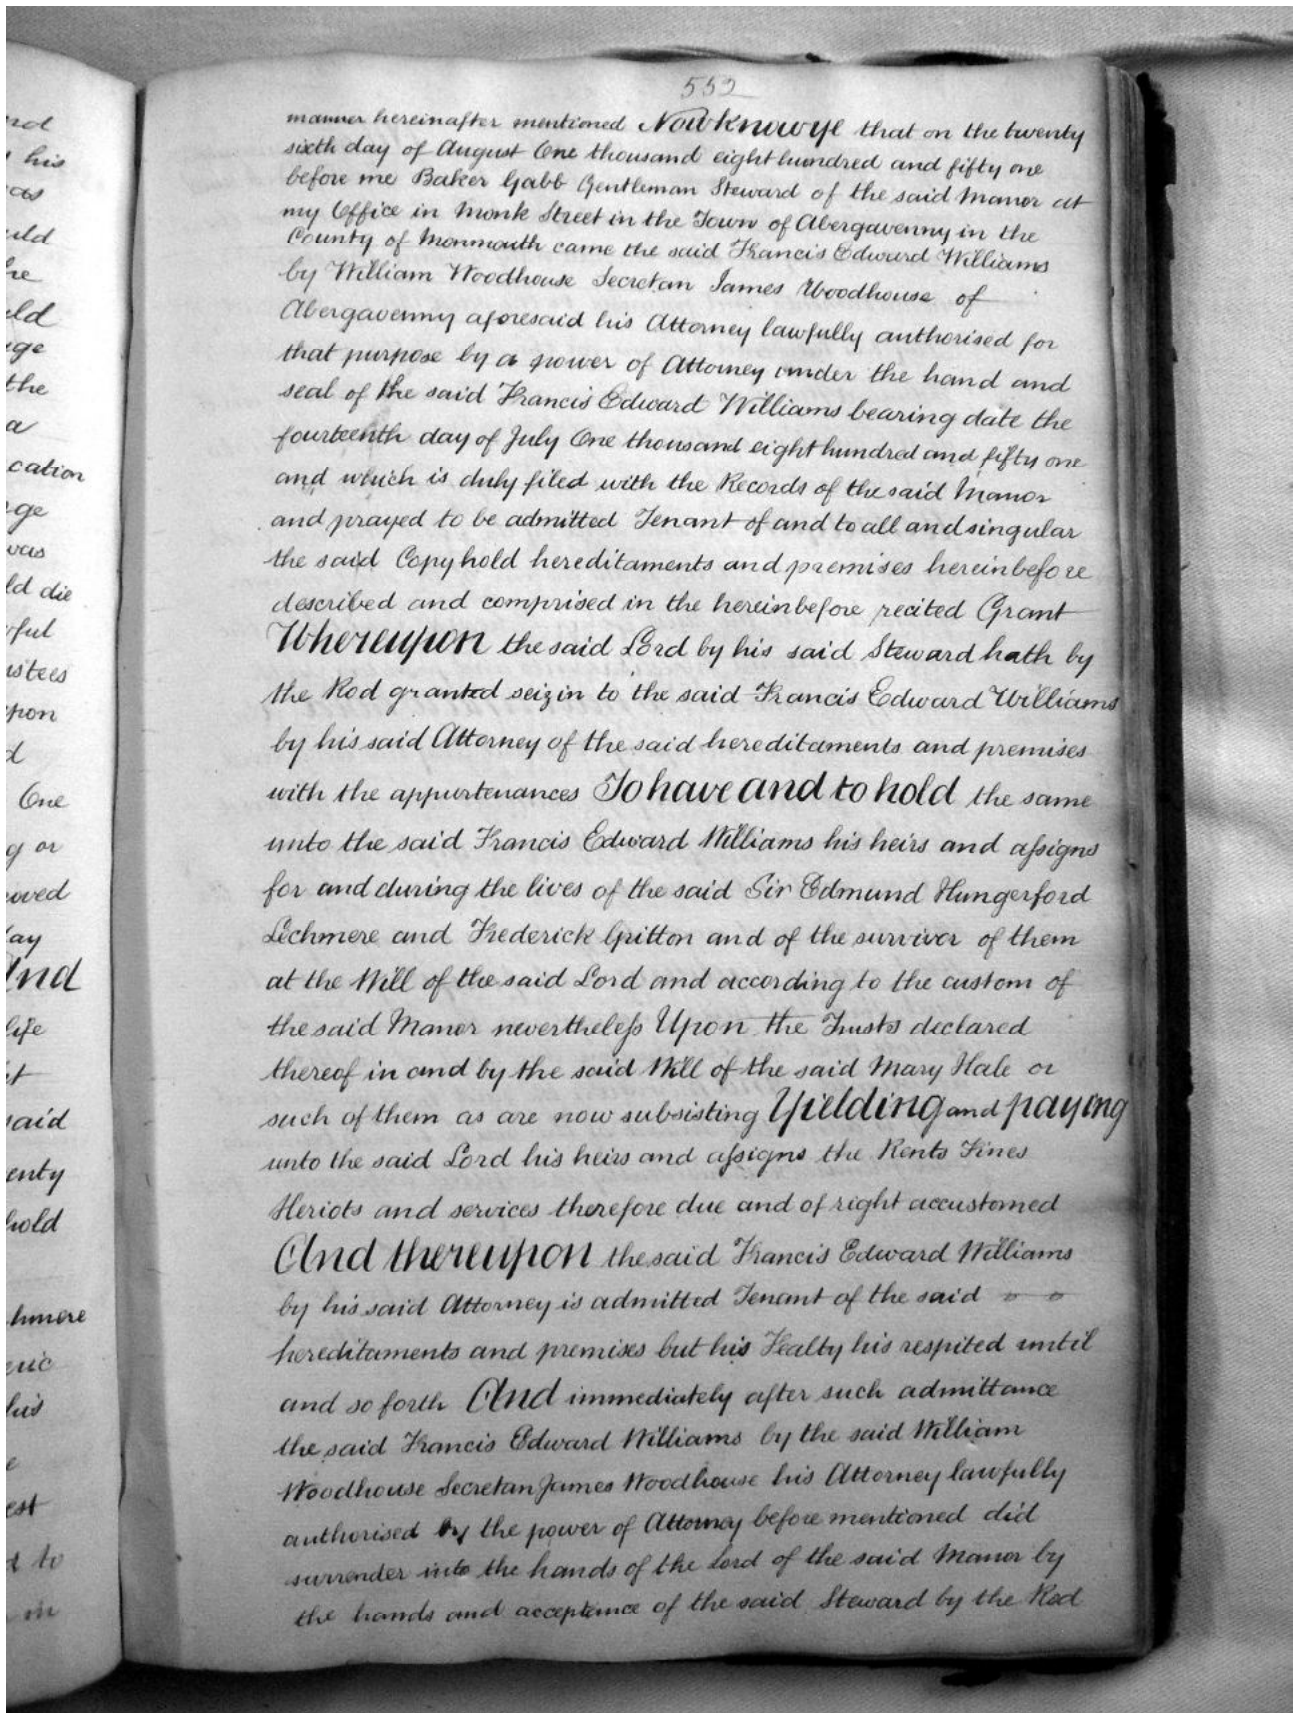 nd
his
as
uld
he
eld
ege
the
a
cation
ge
was
ld die
ful
ustees
pon
d
One
g or
oved
ay
And
life
t
said
enty
hold
hmere
eric
his
e
est
d to
m
552
manner hereinafter mentioned Now know ye that on the twenty
sixth day of August One thousand eight hundred and fifty one
before me Baker Gabb Gentleman Steward of the said Manor at
my Office in Monk Street in the Town of Abergavenny in the
County of Monmouth came the said Francis Edward Williams
by William Woodhouse Secretan James Woodhouse of
Abergavenny aforesaid his Attorney lawfully authorised for
that purpose by a power of Attorney under the hand and
seal of the said Francis Edward Williams bearing date the
fourteenth day of July One thousand eight hundred and fifty one
and which is duly filed with the Records of the said Manor
and prayed to be admitted Tenant of and to all and singular
the said Copyhold hereditaments and premises hereinbefore
described and comprised in the hereinbefore recited Grant
Whereupon the said Lord by his said Steward hath by
the Rod granted seizin to the said Francis Edward Williams
by his said Attorney of the said hereditaments and premises
with the appurtenances To have and to hold the same
unto the said Francis Edward Williams his heirs and assigns
for and during the lives of the said Sir Edmund Hungerford
Lechmere and Frederick Gritton and of the survivor of them
at the Will of the said Lord and according to the custom of
the said Manor nevertheless Upon the Trusts declared
thereof in and by the said Will of the said Mary Hale or
such of them as are now subsisting Yielding and paying
unto the said Lord his heirs and assigns the Rents Fines
Heriots and services therefore due and of right accustomed
And thereupon the said Francis Edward Williams
by his said Attorney is admitted Tenant of the said
hereditaments and premises but his Fealty his respited until
and so forth And immediately after such admittance
the said Francis Edward Williams by the said William
Woodhouse Secretan James Woodhouse his Attorney lawfully
authorised by the power of Attorney before mentioned did
surrender into the hands of the Lord of the said Manor by
the hands and acceptance of the said Steward by the Rod